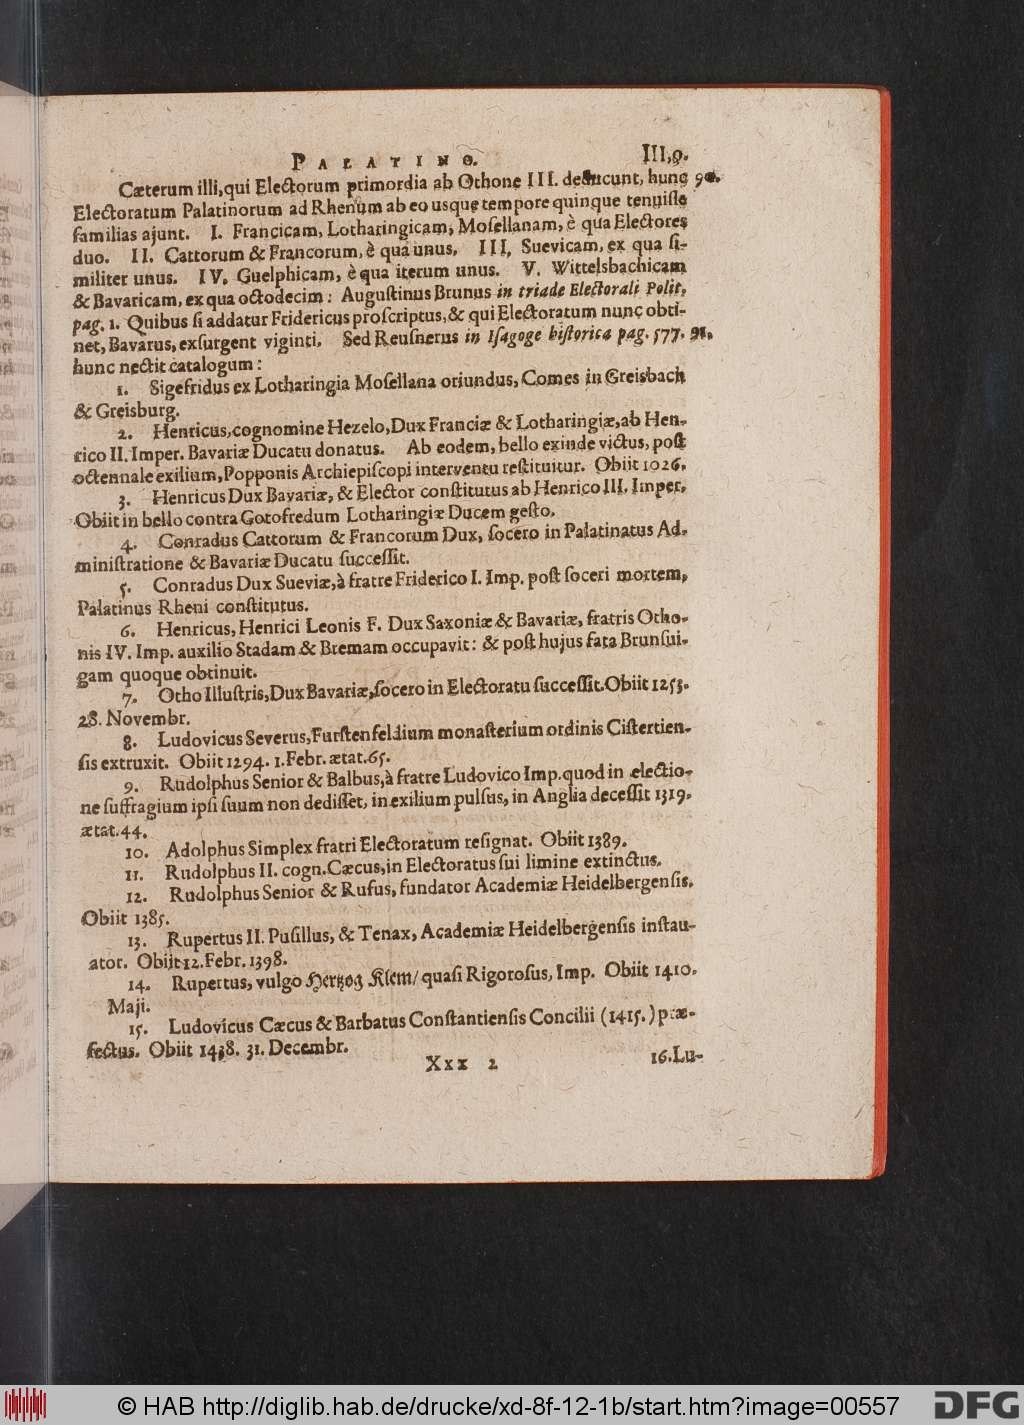 PALATINO. III,9.
Cæterum illi, qui Electorum primordia ab Othone III. deducunt, hunc 90.
Electoratum Palatinorum ad Rhenum ab eo usque tempore quinque tenuisſe
familias ajunt. I. Francicam, Lotharingicam, Moſellanam, è qua Electores
duo. II. Cattorum & Francorum, è qua unus. III, Suevicam, ex qua ſi-
militer unus. IV. Guelphicam, è qua iterum unus. V. Wittelsbachicam
& Bavaricam, ex qua octodecim: Auguſtinus Brunus in triade Electorali Polit.
pag. 1. Quibus ſi addatur Fridericus proſcriptus, & qui Electoratum nunc obti-
net, Bavarus, exſurgent viginti. Sed Reuſnerus in Iſagoge hiſtorica pag. 577. 91.
hunc nectit catalogum:
1. Sigefridus ex Lotharingia Moſellana oriundus, Comes in Greisbach
& Greisburg.
2. Henricus, cognomine Hezelo, Dux Franciæ & Lotharingiæ, ab Hen-
rico II. Imper. Bavariæ Ducatu donatus. Ab eodem, bello exinde victus, poſt
octennale exilium, Popponis Archiepiſcopi interventu reſtituitur. Obiit 1026.
3. Henricus Dux Bavariæ, & Elector conſtitutus ab Henrico III. Imper.
Obiit in bello contra Gotofredum Lotharingiæ Ducem geſto.
4. Conradus Cattorum & Francorum Dux, ſocero in Palatinatus Ad-
miniſtratione & Bavariæ Ducatu ſucceſſit.
5. Conradus Dux Sueviæ, à fratre Friderico I. Imp. poſt ſoceri mortem,
Palatinus Rheni conſtitutus.
6. Henricus, Henrici Leonis F. Dux Saxoniæ & Bavariæ, fratris Otho-
nis IV. Imp. auxilio Stadam & Bremam occupavit: & poſt hujus fata Brunſui-
gam quoque obtinuit.
7. Otho Illuſtris, Dux Bavariæ, ſocero in Electoratu ſucceſſit. Obiit 1253.
28. Novembr.
8. Ludovicus Severus, Furſtenfeldium monaſterium ordinis Ciſtertien-
ſis extruxit. Obiit 1294. 1. Febr. ætat. 65.
9. Rudolphus Senior & Balbus, à fratre Ludovico Imp. quod in electio-
ne ſuffragium ipſi ſuum non dediſſet, in exilium pulſus, in Anglia deceſſit 1319.
ætat. 44.
10. Adolphus Simplex fratri Electoratum reſignat. Obiit 1389.
11. Rudolphus II. cogn. Cæcus, in Electoratus ſui limine extinctus.
12. Rudolphus Senior & Rufus, fundator Academiæ Heidelbergenſis.
Obiit 1385.
13. Rupertus II. Puſillus, & Tenax, Academiæ Heidelbergenſis inſtau-
ator. Obiit 12. Febr. 1398.
14. Rupertus, vulgo Hertzog Klem/ quaſi Rigoroſus, Imp. Obiit 1410.
Maji.
15. Ludovicus Cæcus & Barbatus Conſtantienſis Concilii (1415.) præ-
fectus. Obiit 1438. 31. Decembr.
Xxx 2 16. Lu-
© HAB http://diglib.hab.de/drucke/xd-8f-12-1b/start.htm?image=00557
DFG